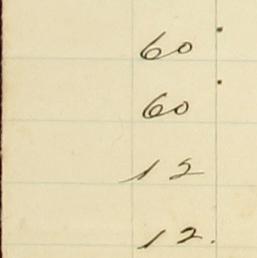 60
60
12
12.